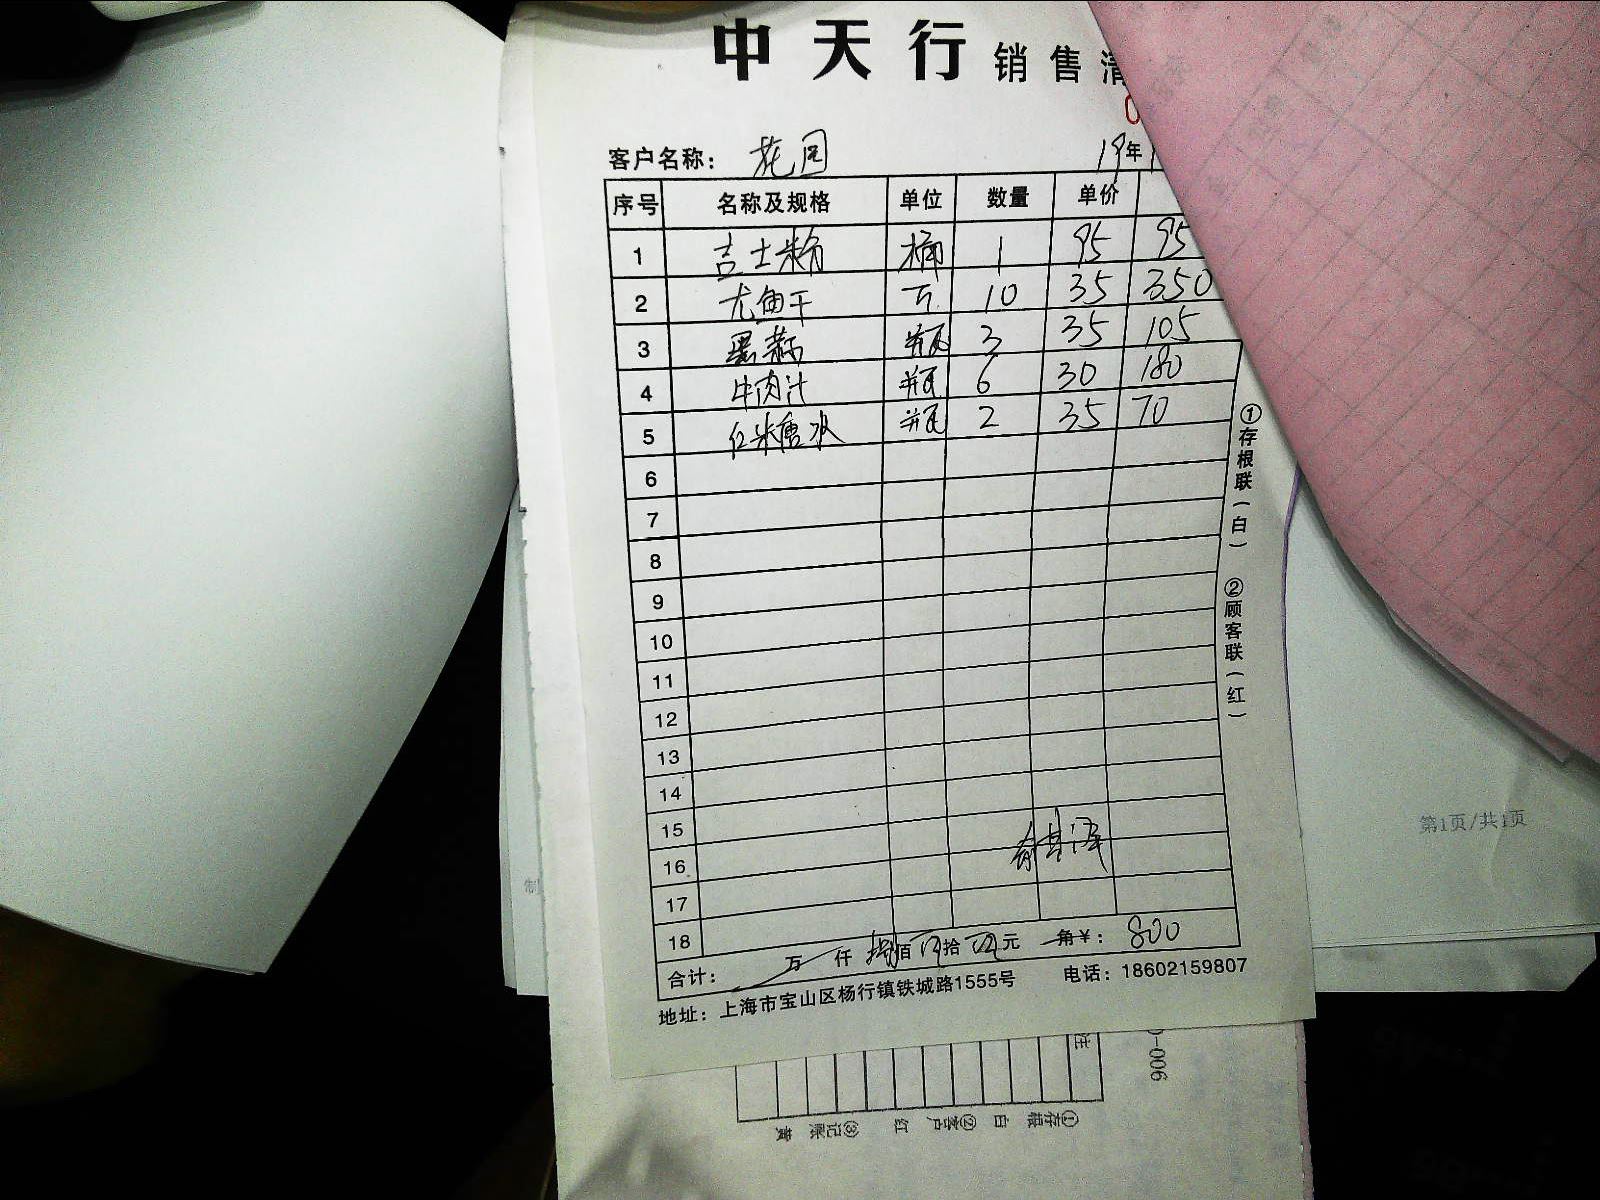 中天行 销售清
客户名称： 花园 19年
序号 名称及规格 单位 数量 单价
1 吉士粉 桶 1 95 95
2 尤鱼干 斤 10 35 350
3 黑蒜 瓶 3 35 105
4 牛肉汁 瓶 6 30 180
5 红米唐水 瓶 2 35 70
6
7
8
9
10
11
12
13
14
15
16
17
18
合计： 万 仟 捌佰 拾 元 角￥： 800
地址：上海市宝山区杨行镇铁城路1555号 电话：18602159807
①存根联（白） ②顾客联（红）
第1页/共1页
-006
①存根 白 ②客户 红 ③记账 黄